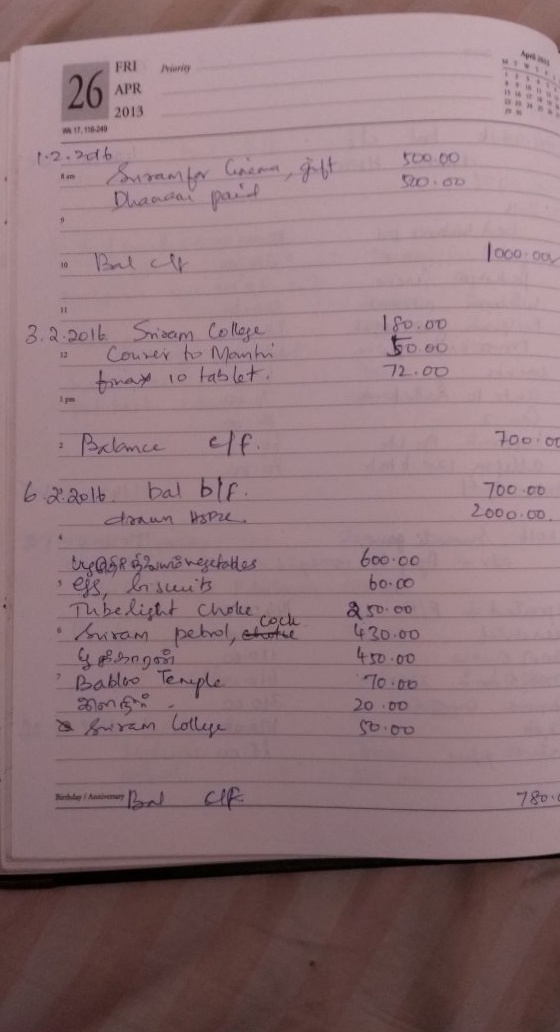 26 FRI Priority
APR
2013
Wk 17, 116-249
April 2013
1.2.2016
8 am Sriram for Cinema, gift 500.00
paid 500.00
9
10 Bal c/f 1000.00
11
3.2.2016 Sriram College 180.00
12 Courier to 50.00
10 tablet. 72.00
1 pm
2 Balance c/f. 700.00
6.2.2016 bal b/f. 700.00
drawn 2000.00
4
vegetables 600.00
5 egg, biscuits 60.00
Tubelight Choke 250.00
6 Sriram petrol, cock 430.00
பூக்காரன் 450.00
7 Babloo Temple 70.00
இளநீர் - 20.00
Sriram College 50.00
Birthday / Anniversary Bal c/f. 780.0